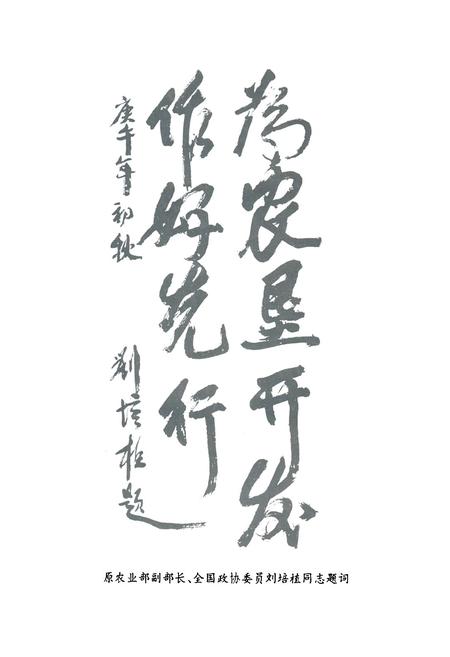 为农垦开发
作好先行
庚午年初秋
刘培植题
原农业部副部长、全国政协委员刘培植同志题词